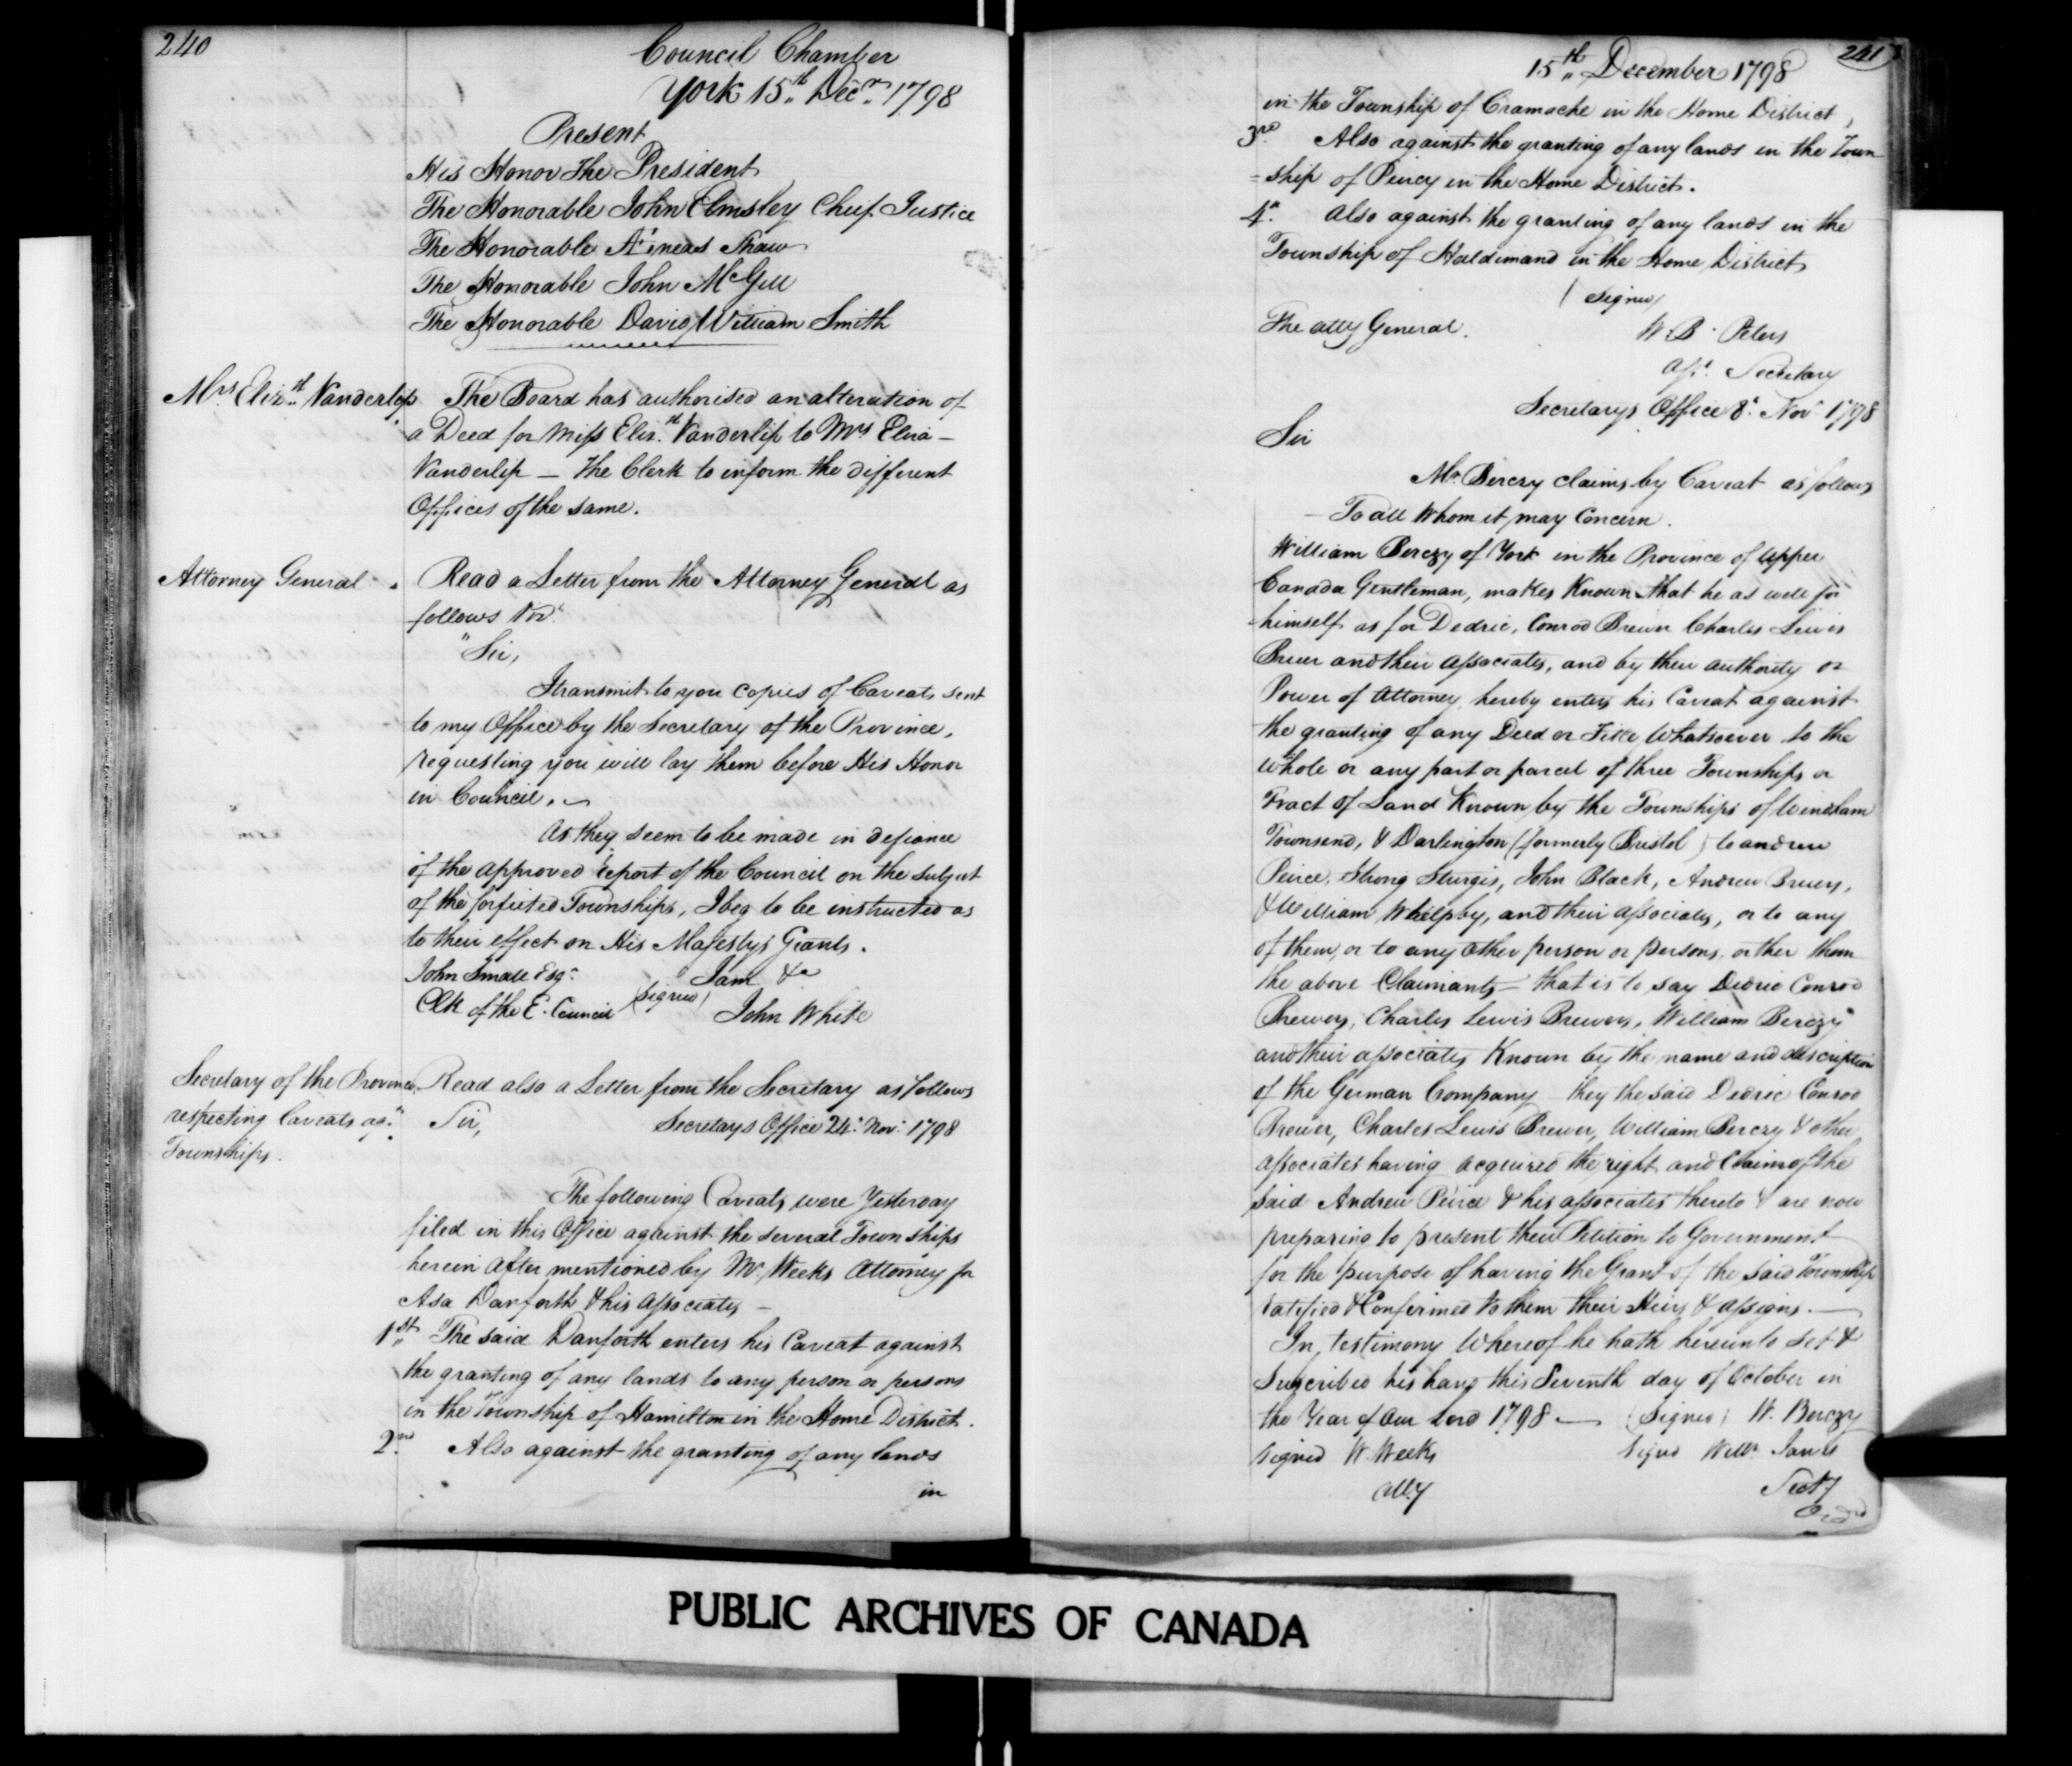 240
Council Chamber
York 15th Decr. 1798
Present
His Honor The President
The Honorable John Elmsley Chief Justice
The Honorable Æneas Shaw
The Honorable John McGill
The Honorable David William Smith
Mrs Elizth. Vanderlip
The Board has authorised an alteration of
a Deed for Miss Elizth. Vanderlip to Mrs Eliza
Vanderlip — The Clerk to inform the different
Offices of the same.
Attorney General
Read a Letter from the Attorney General as
follows Vizt.
"Sir,
I transmit to you copies of Caveats sent
to my Office by the Secretary of the Province,
requesting you will lay them before His Honor
in Council. —
As they seem to be made in defiance
of the approved report of the Council on the subject
of the forfeited Townships, I beg to be instructed as
to their effect on His Majesty's Grants.
John Small Esqr. I am &a
Clk of the E. Council (signed) John White
Secretary of the Province
respecting Caveats agt.
Townships.
Read also a Letter from the Secretary as follows
Sir, Secretarys Office 24. Nov. 1798
The following Caveats were Yesterday
filed in this Office against the several Town ships
herein after mentioned by Mr. Weeks Attorney for
Asa Danforth & his associates —
1st. The said Danforth enters his Caveat against
the granting of any lands to any person or persons
in the Township of Hamilton in the Home District.
2nd. Also against the granting of any lands
in
241
15th December 1798
in the Township of Cramache in the Home District,
3rd. Also against the granting of any lands in the Town
=ship of Piercy in the Home District.
4. Also against the granting of any lands in the
Township of Haldimand in the Home District
(signed)
The atty General. W. B. Peters
asst. Secretary
Secretarys Office 8. Nov. 1798
Sir
Mr. Berczy claims by Caveat as follows
— To all Whom it may Concern.
William Berczy of York in the Province of Upper
Canada Gentleman, makes Known that he as well for
himself as for Dedric, Conrod Brewer Charles Lewis
Bruer and their associates, and by their authority or
Power of attorney hereby enters his Caveat against
the granting of any Deed or Title Whatsoever to the
whole or any part or parcel of three Townships or
Tract of Land Known by the Townships of Windham
Townsend, & Darlington (formerly Bristol) to andrew
Peirce, Strong Sturgis, John Black, Andrew Bruers,
& William Whelpby, and their associates, or to any
of them, or to any other person or persons, other than
the above Claimants — that is to say Dedric Conrod
Brewers, Charles Lewis Brewers, William Berczy
and their associates Known by the name and description
of the German Company — they the said Dedric Conrod
Brewer, Charles Lewis Brewer, William Berczy & other
associates having acquired the right and Claims of the
said Andrew Peirce & his associates thereto & are now
preparing to present their Petition to Government
for the purpose of having the Grant of the said Township
ratified & Confirmed to them their Heirs & assigns. —
In testimony Whereof he hath hereunto set &
Subscribed his hand this Seventh day of October in
the Year of Our Lord 1798 — (Signed) W. Berczy
signed W. Weeks signd Willm Jarvis
atty Secty
PUBLIC ARCHIVES OF CANADA